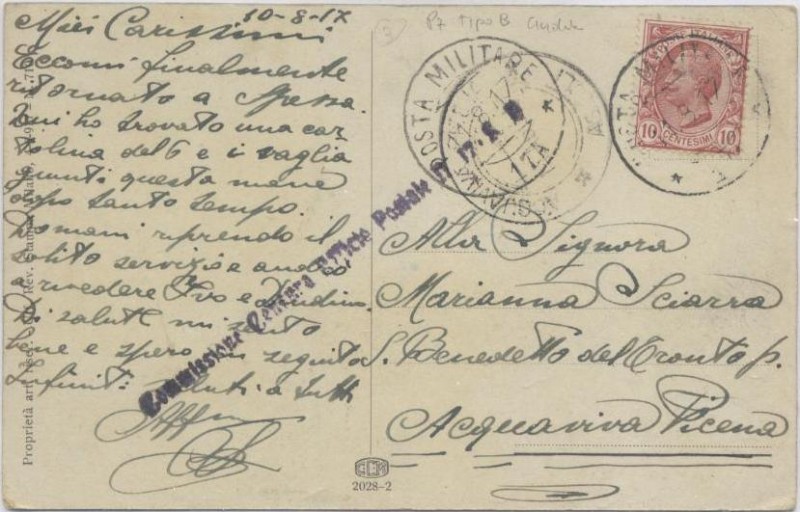 10-8-17
Miei Carissimi
Eccomi finalmente
ritornato a
ho trovato una car
tolina del 6 e i vaglia
giunti questa mane
dopo tanto tempo.
Domani riprendo il
solito servizio e andrò
a rivedere Ivo e
Di salute mi sento
bene e spero in seguito
Infiniti saluti a tutti
Aff
Proprietà art.
P7 tipo B
POSTA MILITARE
17A
10 CENTESIMI 10
POSTA MILITARE
Commissione Censura Ufficio Postale
Alla Signora
Marianna Sciarra
S. Benedetto del Tronto p.
Acquaviva Picena
2028-2